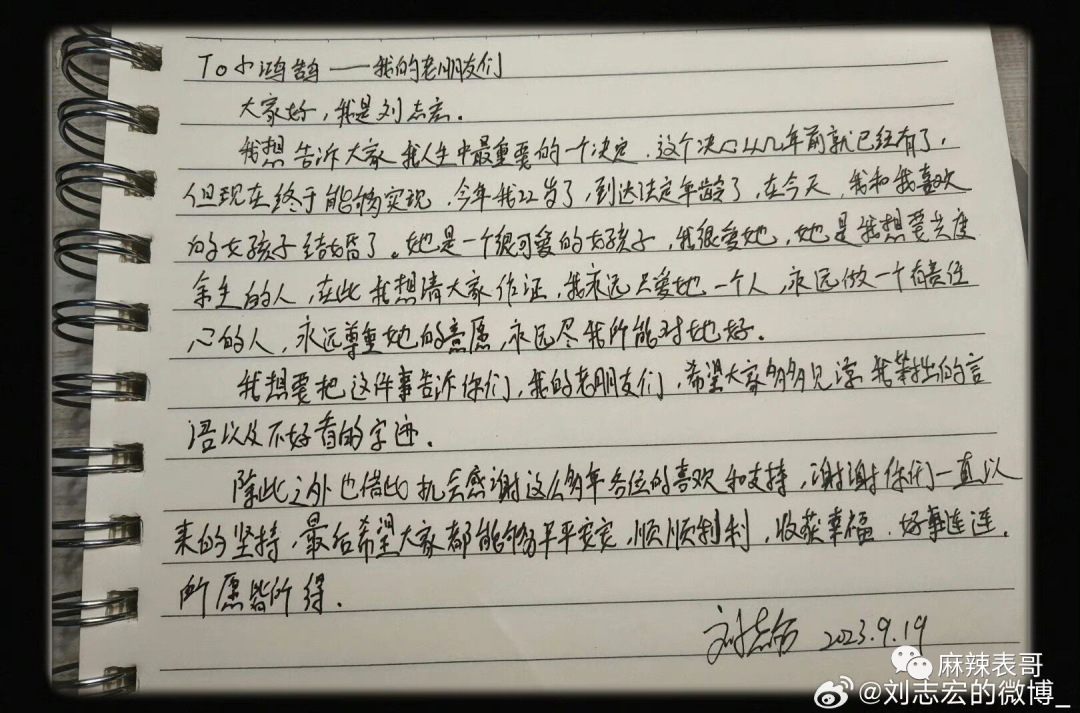 To 小鸿鹄——我的老朋友们
大家好，我是刘志宏.
我想告诉大家我人生中最重要的一个决定，这个决心从几年前就已经有了，
但现在终于能够实现，今年我22岁了，到达法定年龄了，在今天，我和我喜欢
的女孩子结婚了。她是一个很可爱的女孩子，我很爱她，她是我想要共度
余生的人，在此我想请大家作证，我永远只爱她一个人，永远做一个有责任
心的人，永远尊重她的意愿，永远尽我所能对她好.
我想要把这件事告诉你们，我的老朋友们，希望大家多多见谅我笨拙的言
语以及不好看的字迹.
除此之外也借此机会感谢这么多年各位的喜欢和支持，谢谢你们一直以
来的坚持，最后希望大家都能够平平安安，顺顺利利，收获幸福，好事连连，
所愿皆所得.
刘志宏 2023.9.19
麻辣表哥
@刘志宏的微博_